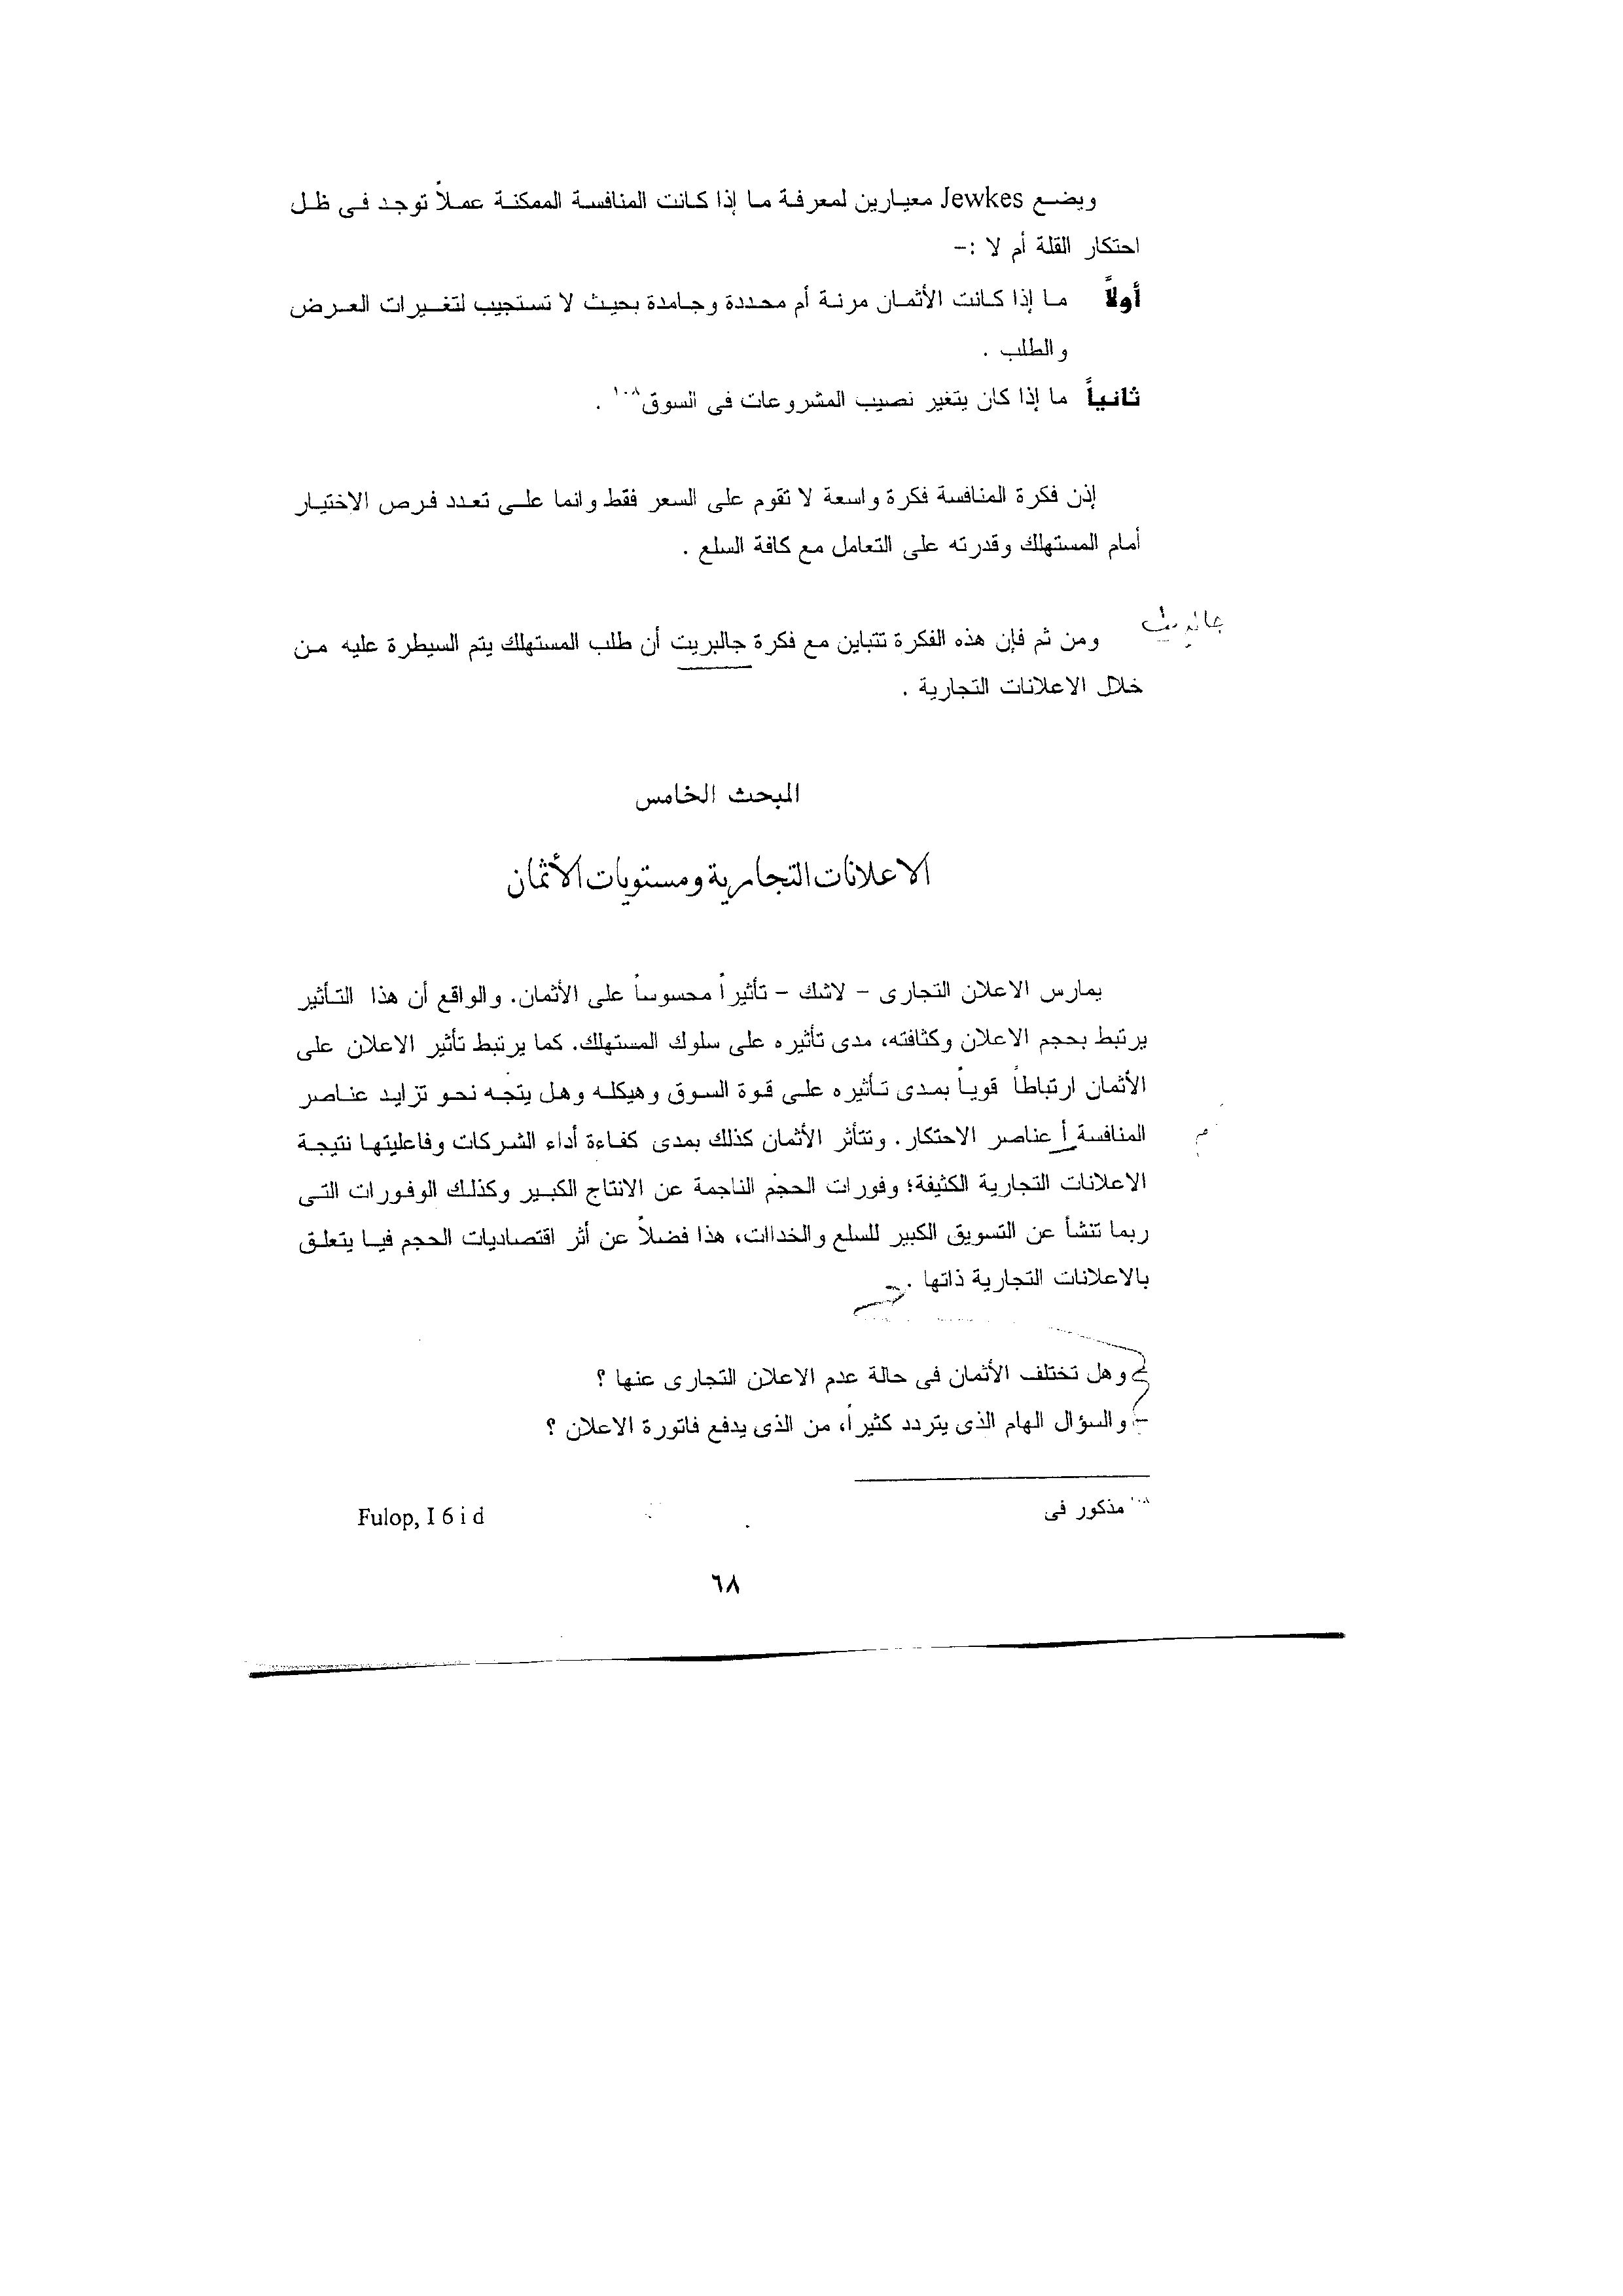 ويضع Jewkes معيارين لمعرفة ما إذا كانت المنافسة الممكنة عملاً توجد فى ظل
احتكار القلة أم لا :-
أولاً ما إذا كانت الأثمان مرنة أم محددة وجامدة بحيث لا تستجيب لتغيرات العرض
والطلب .
ثانياً ما إذا كان يتغير نصيب المشروعات فى السوق١٠٨ .
إذن فكرة المنافسة فكرة واسعة لا تقوم على السعر فقط وانما على تعدد فرص الإختيار
أمام المستهلك وقدرته على التعامل مع كافة السلع .
ومن ثم فإن هذه الفكرة تتباين مع فكرة جالبريت أن طلب المستهلك يتم السيطرة عليه من
خلال الاعلانات التجارية .
المبحث الخامس
الاعلانات التجارية ومستويات الأثمان
يمارس الاعلان التجارى - لاشك - تأثيراً محسوساً على الأثمان. والواقع أن هذا التأثير
يرتبط بحجم الاعلان وكثافته، مدى تأثيره على سلوك المستهلك. كما يرتبط تأثير الاعلان على
الأثمان ارتباطاً قوياً بمدى تأثيره على قوة السوق وهيكله وهل يتجه نحو تزايد عناصر
المنافسة أ عناصر الاحتكار. وتتأثر الأثمان كذلك بمدى كفاءة أداء الشركات وفاعليتها نتيجة
الاعلانات التجارية الكثيفة؛ وفورات الحجم الناجمة عن الانتاج الكبير وكذلك الوفورات التى
ربما تنشأ عن التسويق الكبير للسلع والخداات، هذا فضلاً عن أثر اقتصاديات الحجم فيا يتعلق
بالاعلانات التجارية ذاتها .
وهل تختلف الأثمان فى حالة عدم الاعلان التجارى عنها ؟
- والسؤال الهام الذى يتردد كثيراً، من الذى يدفع فاتورة الاعلان ؟
١٠٨ مذكور فى Fulop, I 6 i d
٦٨